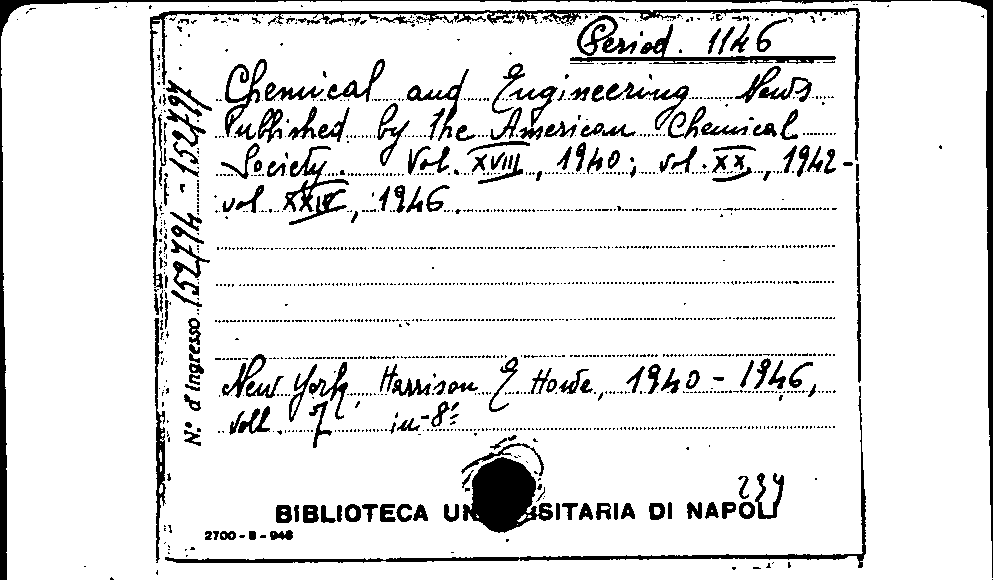 Period. 1146
Chemical and Engineering News
Published by the American Chemical
Society. Vol. XVIII, 1940; vol. XX, 1942-
vol. XXIV, 1946.
New York, Harrison E Howe, 1940 - 1946,
voll. 7 in-8º
N.º d'Ingresso 152794 - 152797
239
BIBLIOTECA UN SITARIA DI NAPOLI
2700 - 8 - 948